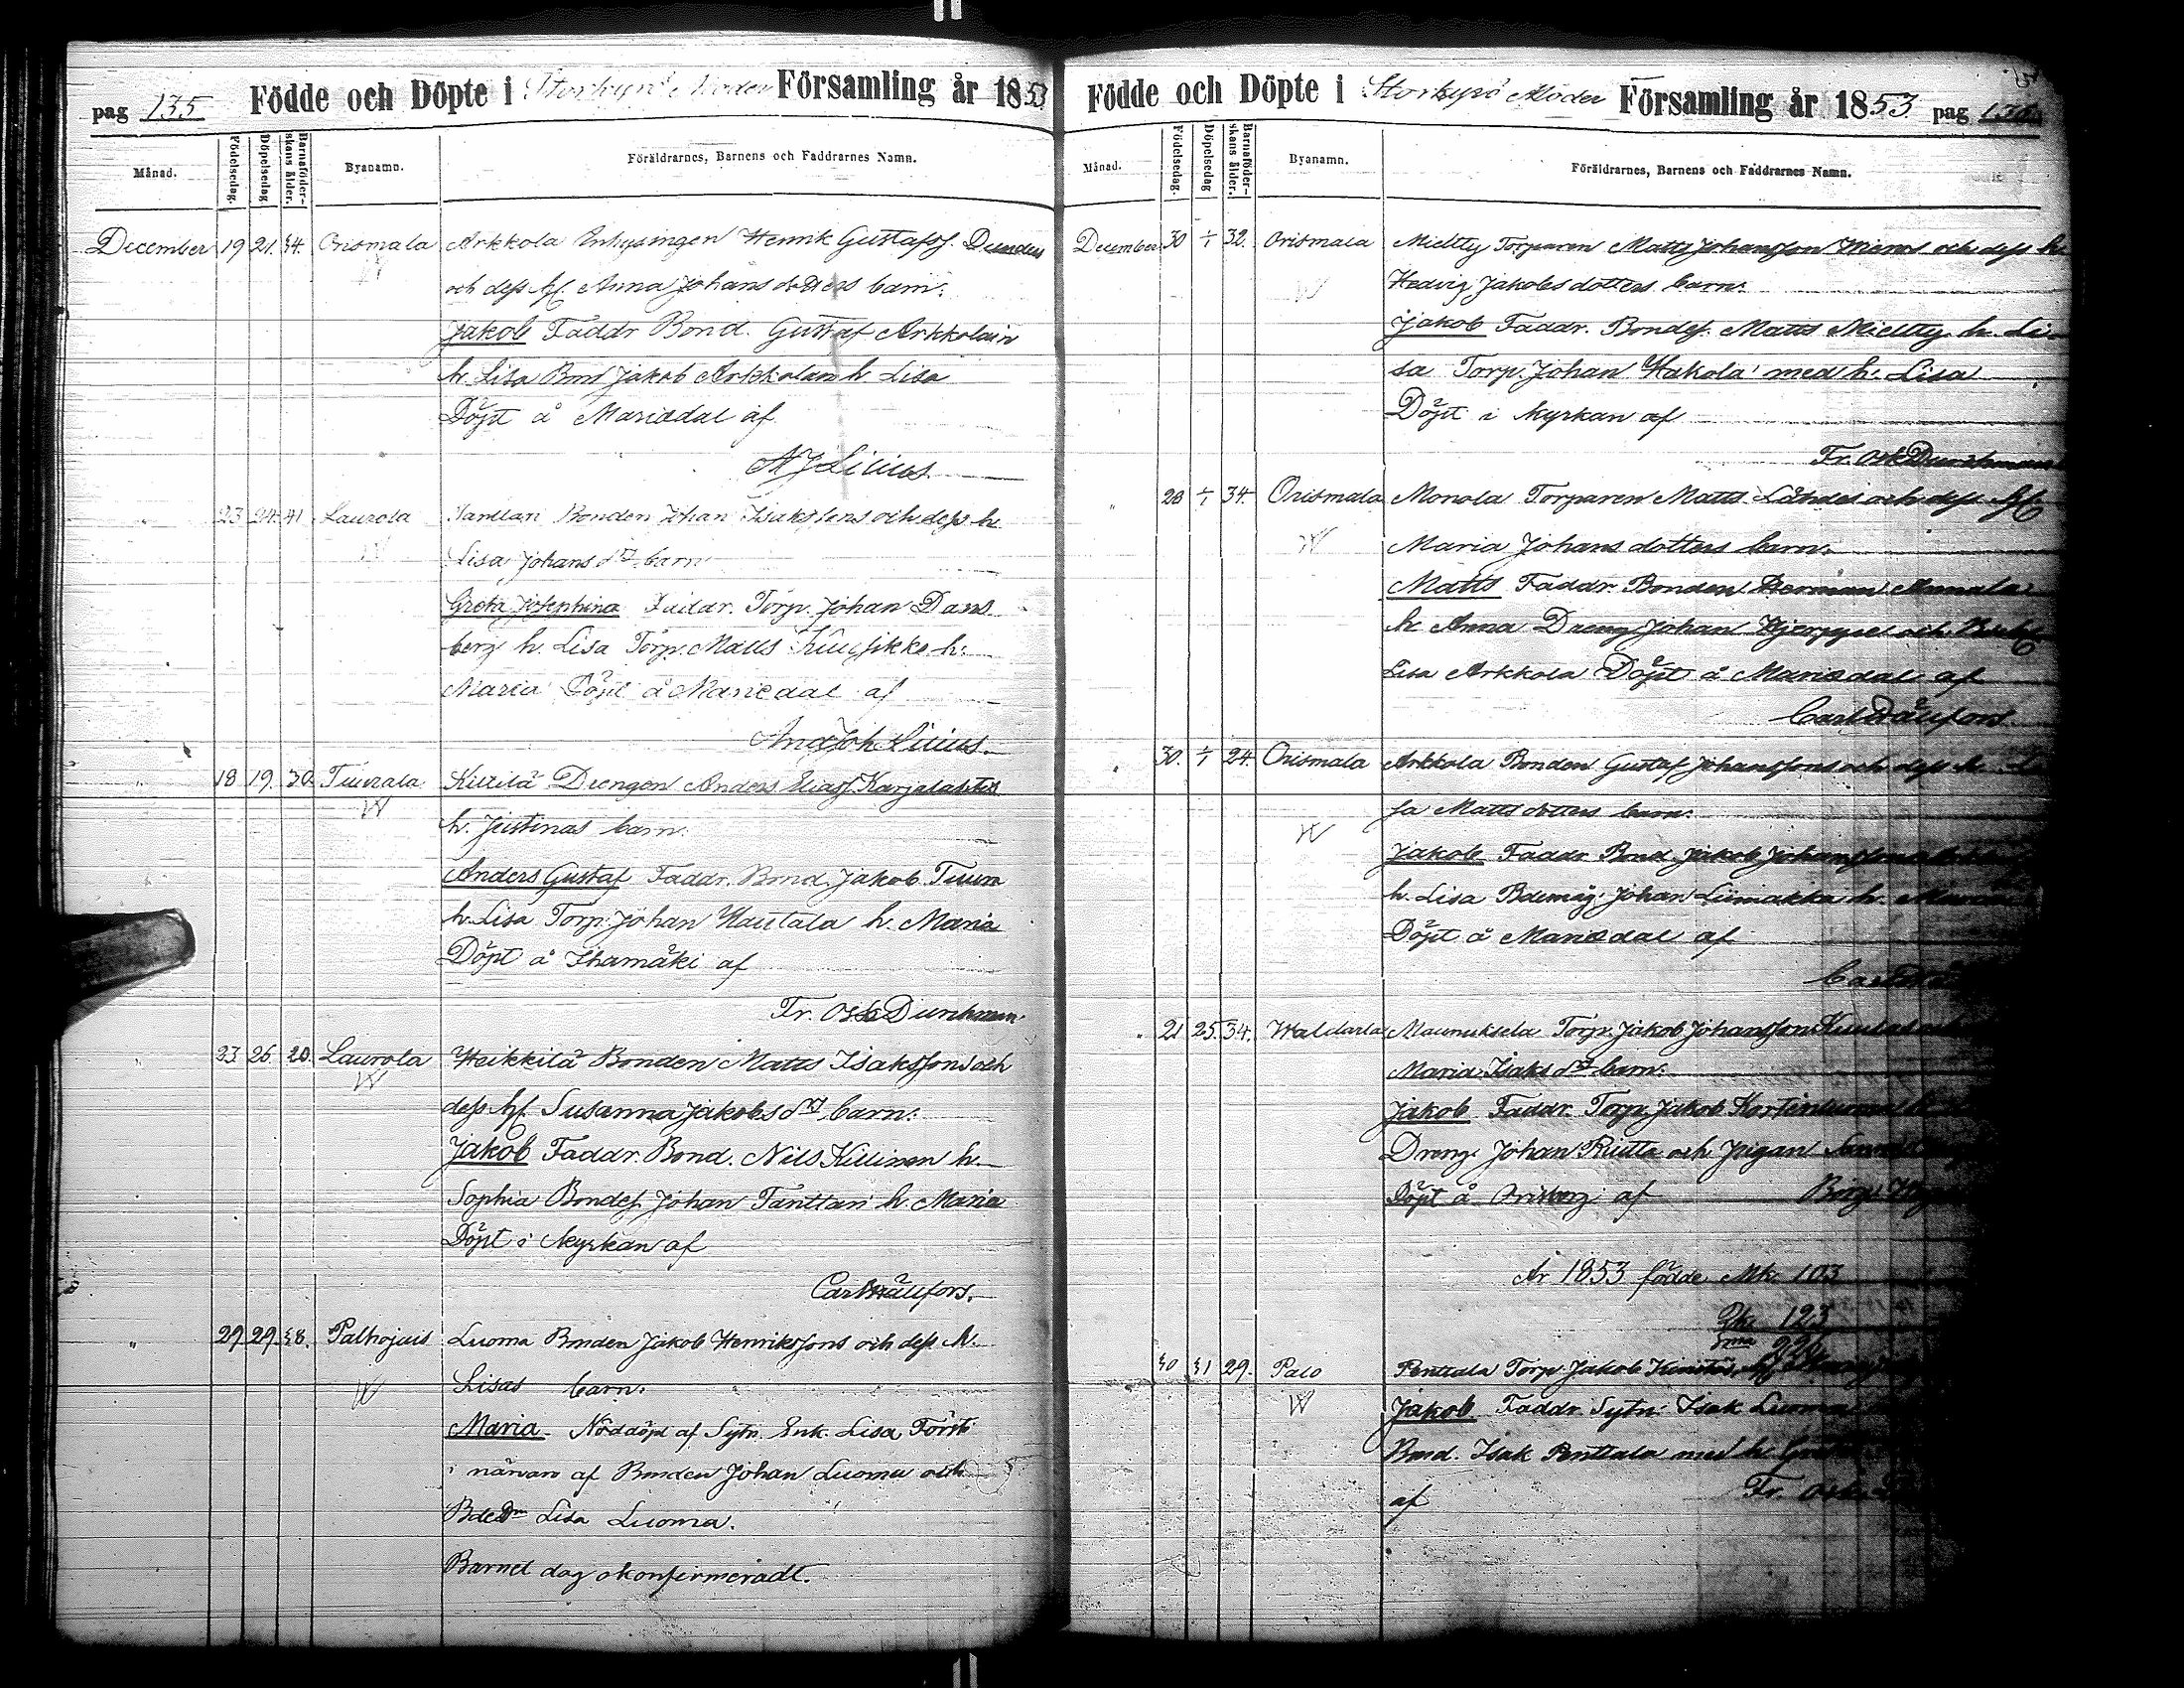 pag 135 Födde och Döpte i Storkyrö Moder Församling år 1853
Månad. Födelsedag. Döpelsedag Barnaföderskans ålder. Byanamn. Föräldrarnes, Barnens och Faddrarnes Namn.
December 19 21. 34. Orismala Arkkola Inhysingen Henrik Gustafss.
och dess hf. Anna Johansdotters barn:
Jakob Faddr Bond. Gustaf Arkkola
h. Lisa Bond Jakob Arkkola h Lisa
Döpt å Mariedal af
A J Lilius.
" 23 24. 41 Laurola Tanttari Bonden Johan Isakssons och dess h.
Lisa Johans dr barn
Greta Josephina Faddr. Torp. Johan Dans
berg h. Lisa Torp. Matts h.
Maria Döpt å Mariedal af
And Joh Lilius.
" 18 19. 30. Tuurala Killilä Drengen Anders Eliass. Karjalahtis
h. Justinas barn:
Anders Gustaf Faddr. Bond. Jakob Tuura
h. Lisa Torp. Johan Hautala h. Maria
Döpt å Ihamäki af
Fr. Osk Durchman
" 23 26. 20. Laurola Heikkilä Bonden Matts Isakssons och
dess hf. Susanna Jakobs dr barn:
Jakob Faddr. Bond. Nils Killinen h.
Sophia Bondes. Johan Tanttari h. Maria
Döpt i Kyrkan af
Carl Hällfors.
" 29 29. 38. Palhojais Luoma Bonden Jakob Henrikssons och dess h.
Lisas barn:
Maria Nöddöpt af Sytn. Enk. Lisa Förti
i närvaro af Bonden Johan Luoma och
Lisa Luoma.
Barnet dog okonfirmeradt.
Födde och Döpte i Storkyrö Moder Församling år 1853 pag 136
Månad. Födelsedag. Döpelsedag Barnaföderskans ålder. Byanamn. Föräldrarnes, Barnens och Faddrarnes Namn.
December 30 1/1 32. Orismala Mieltty Torparen Matts Johansson och dess h.
Hedvig Jakobs dotters barn:
Jakob Faddr. Bondes. Matts Mieltty h. Li-
sa Torp. Johan Hakola med h. Lisa
Döpt i Kyrkan af
Fr. Osk Durchman
" 28 1/1 34. Orismala Monola Torparen Matts och dess hf
Maria Johans dotters barn:
Matts Faddr. Bonden Herman Annala
h. Anna Dreng Johan och
Lisa Arkkola Döpt å Mariedal af
Carl Hällfors.
" 30. 1/1 24. Orismala Arkkola Bonden Gustaf Johanssons och dess h. Li
sa Matts dotters barn:
Jakob Faddr. Bond. Jakob Johansson
h. Lisa Bdemåg. Johan Liimakka h. Maria
Döpt å Mariedal af
Carl
" 21 25. 34. Waldarla Maunuksela Torp. Jakob Johansson
Maria Isaks dr barn:
Jakob Faddr. Torp. Jakob
Dreng. Johan Riitta och pigan
Döpt å Orisberg af
År 1853 födde Mk. 103
Qk. 123
Sma 226
30 31 29. Palo Penttala Torp. Jakob
Jakob Faddr. Sytn. Isak Luoma
Bond. Isak Penttala med h.
af Fr. Osk.